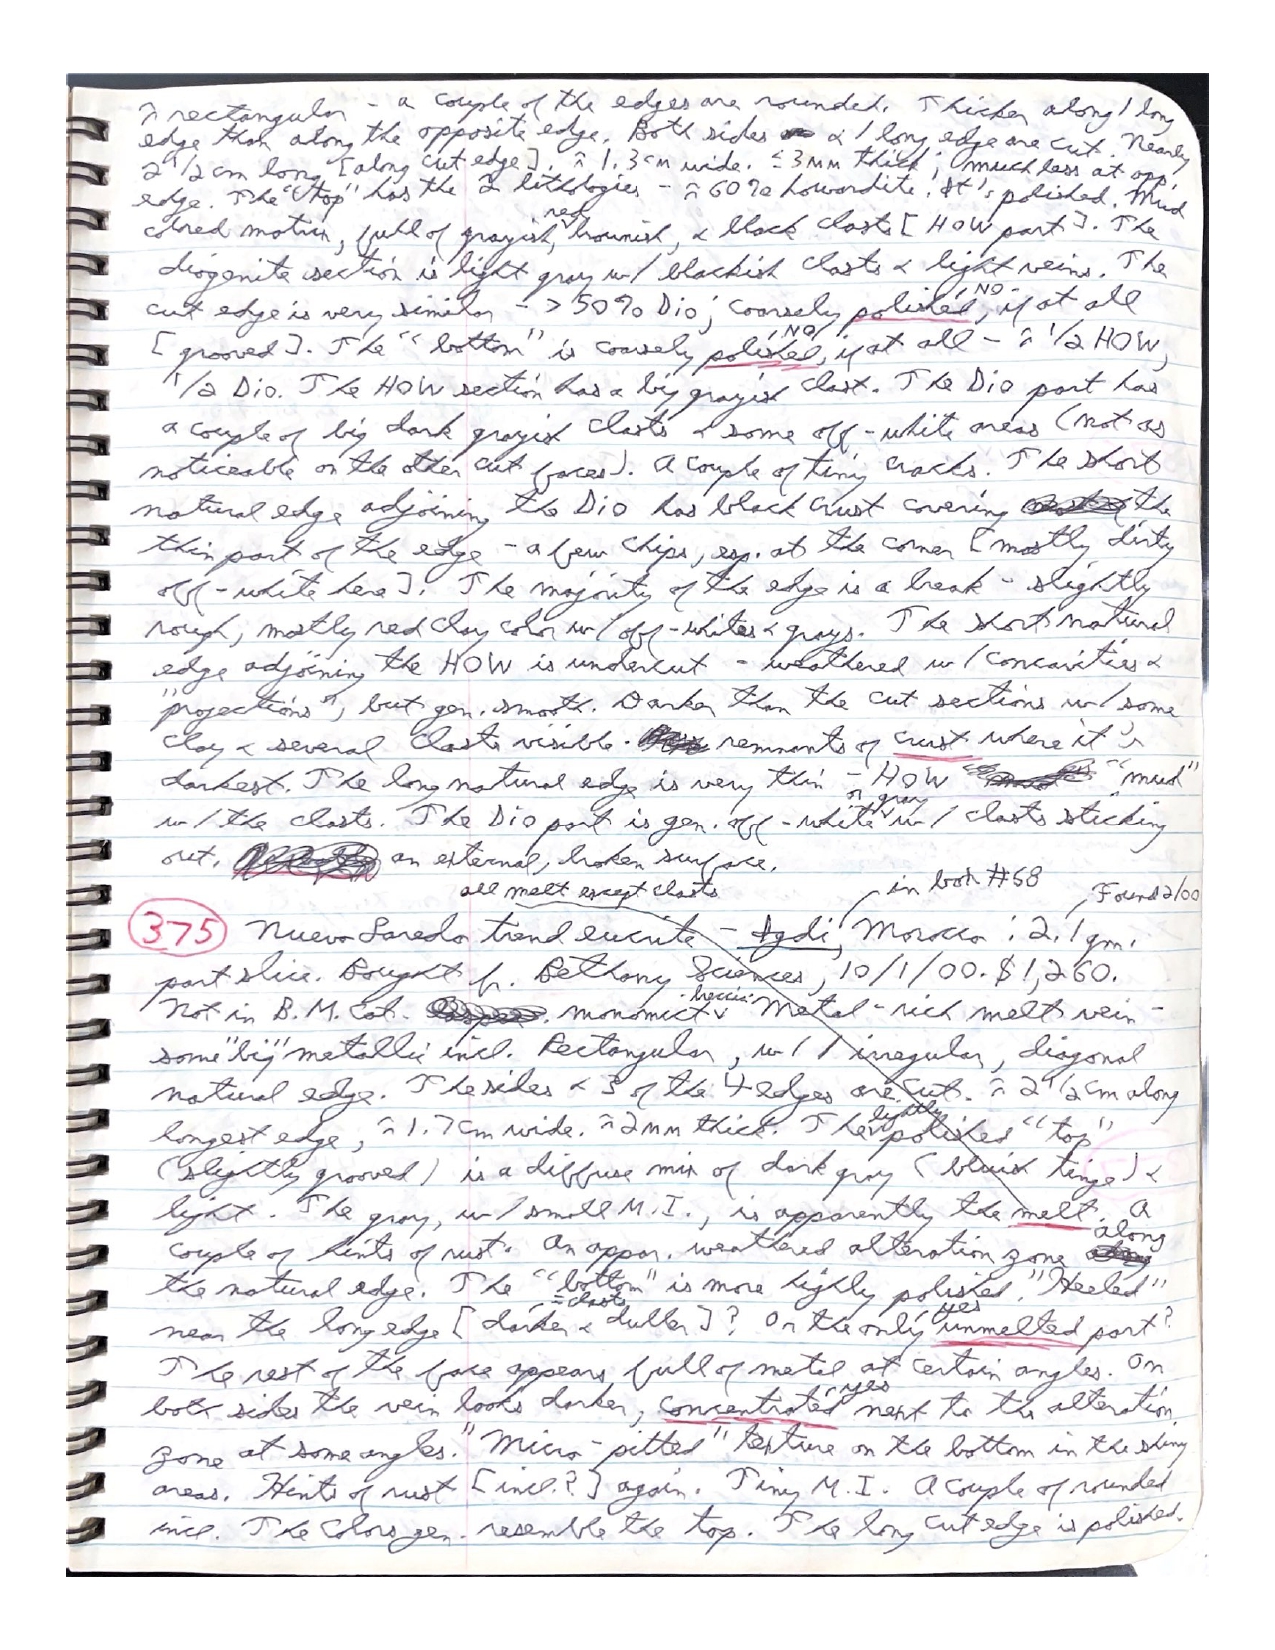 ≈ rectangular - a couple of the edges are rounded. Thicker along 1 long
edge than along the opposite edge. Both sides & 1 long edge are cut. Nearly
2 1/2 cm long [along cut edge]. ≈ 1.3 cm wide. ≤ 3mm thick; much less at opp.
edge. The "top" has the 2 lithologies - ≈ 60% howardite. It's polished. Mud
red
colored matrix, full of grayish, brownish, & black clasts [HOW part]. The
diogenite section is light gray w/ blackish clasts & light veins. The
NO
cut edge is very similar - > 50% Dio; coarsely polished, if at all
NO
[grooved]. The "bottom" is coarsely polished, if at all - ≈ 1/2 HOW,
1/2 Dio. The HOW section has a big grayish clast. The Dio part has
a couple of big dark grayish clasts & some off-white areas (not as
noticeable on the other cut faces). A couple of tiny cracks. The short
natural edge adjoining the Dio has black crust covering the
thin part of the edge - a few chips, esp. at the corner [mostly dirty
off-white here]. The majority of the edge is a break - slightly
rough, mostly red clay color w/ off-whites & grays. The short natural
edge adjoining the HOW is undercut - weathered w/ concavities &
"projections", but gen. smooth. Darker than the cut sections w/ some
clay & several clasts visible. remnants of crust where it's
darkest. The long natural edge is very thin - HOW "mud"
or gray
w/ the clasts. The Dio part is gen. off-white w/ clasts sticking
out. an external, broken surface.
all melt except clasts
in book #68
Found 2/00
375 Nuevo Laredo trend eucrite - Agdi, Morocco: 2.1 gm.
part slice. Bought f. Bethany Sciences, 10/1/00. $1,260.
breccia
Not in B.M. Cat. monomict Metal-rich melt vein -
some "big" metallic incl. Rectangular, w/ 1 irregular, diagonal
natural edge. The sides & 3 of the 4 edges are cut. ≈ 2 1/2 cm along
lightly
longest edge, ≈ 1.7 cm wide. ≈ 2mm thick. The polished "top"
(slightly grooved) is a diffuse mix of dark gray (bluish tinge) &
light. The gray, w/ small M.I., is apparently the melt. A
along
couple of hints of rust. An appar. weathered alteration zone
the natural edge. The "bottom" is more highly polished. "Heeled"
= clasts
yes
near the long edge [darker & duller]? Or the only unmelted part?
The rest of the face appears full of metal at certain angles. On
yes
both sides the vein looks darker, concentrated next to the alteration
zone at some angles. "Micro-pitted" texture on the bottom in the shiny
areas. Hints of rust [incl.?] again. Tiny M.I. A couple of rounded
incl. The colors gen. resemble the top. The long cut edge is polished.